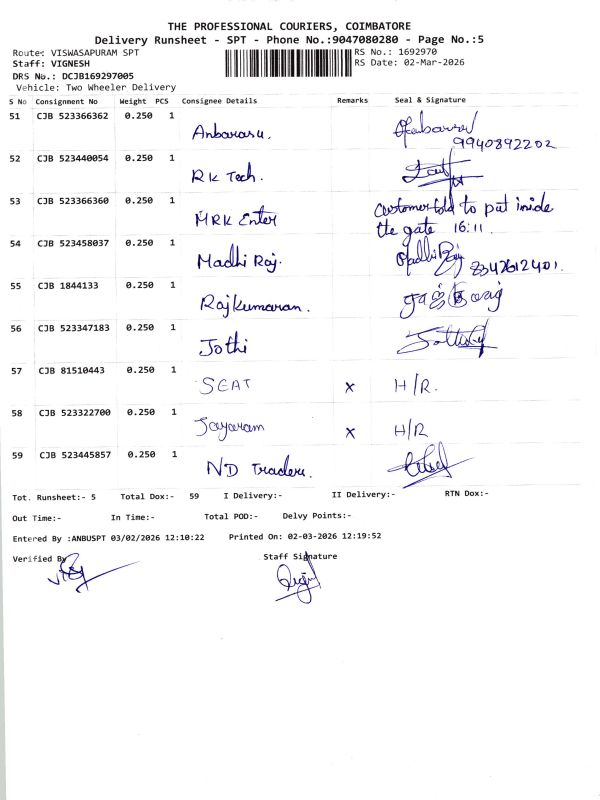 THE PROFESSIONAL COURIERS, COIMBATORE
Delivery Runsheet - SPT - Phone No.:9047080280 - Page No.:5
Route: VISWASAPURAM SPT RS No.: 1692970
Staff: VIGNESH RS Date: 02-Mar-2026
DRS No.: DCJB169297005
Vehicle: Two Wheeler Delivery
S No Consignment No Weight PCS Consignee Details Remarks Seal & Signature
51 CJB 523366362 0.250 1 Anbarasu.
9940892202
52 CJB 523440054 0.250 1 RK Tech.
53 CJB 523366360 0.250 1 MRK Enter Customer told to put inside
the gate 16:11.
54 CJB 523458037 0.250 1 Madhi Raj. 8347612401.
55 CJB 1844133 0.250 1 Rajkumaran.
56 CJB 523347183 0.250 1 Jothi
57 CJB 81510443 0.250 1 SEAT x H/R.
58 CJB 523322700 0.250 1 Jayaram x H/R
59 CJB 523445857 0.250 1 ND Traders.
Tot. Runsheet:- 5 Total Dox:- 59 I Delivery:- II Delivery:- RTN Dox:-
Out Time:- In Time:- Total POD:- Delvy Points:-
Entered By :ANBUSPT 03/02/2026 12:10:22 Printed On: 02-03-2026 12:19:52
Verified By Staff Signature